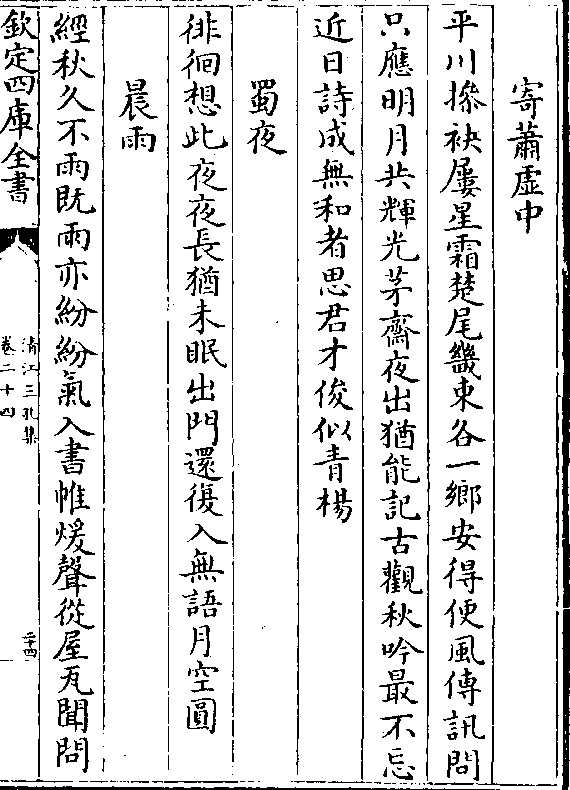 寄蕭虛中
平川摻袂屢星霜楚尾畿東各一鄉安得便風傳訊問
只應明月共輝光茅齋夜出猶能記古觀秋吟最不忘
近日詩成無和者思君才俊似青楊
蜀夜
徘徊想此夜夜長猶未眠出門還復入無語月空圓
晨雨
經秋久不雨既雨亦紛紛氣入書帷煖聲從屋瓦聞問
欽定四庫全書
清江三孔集
卷二十四
二十四